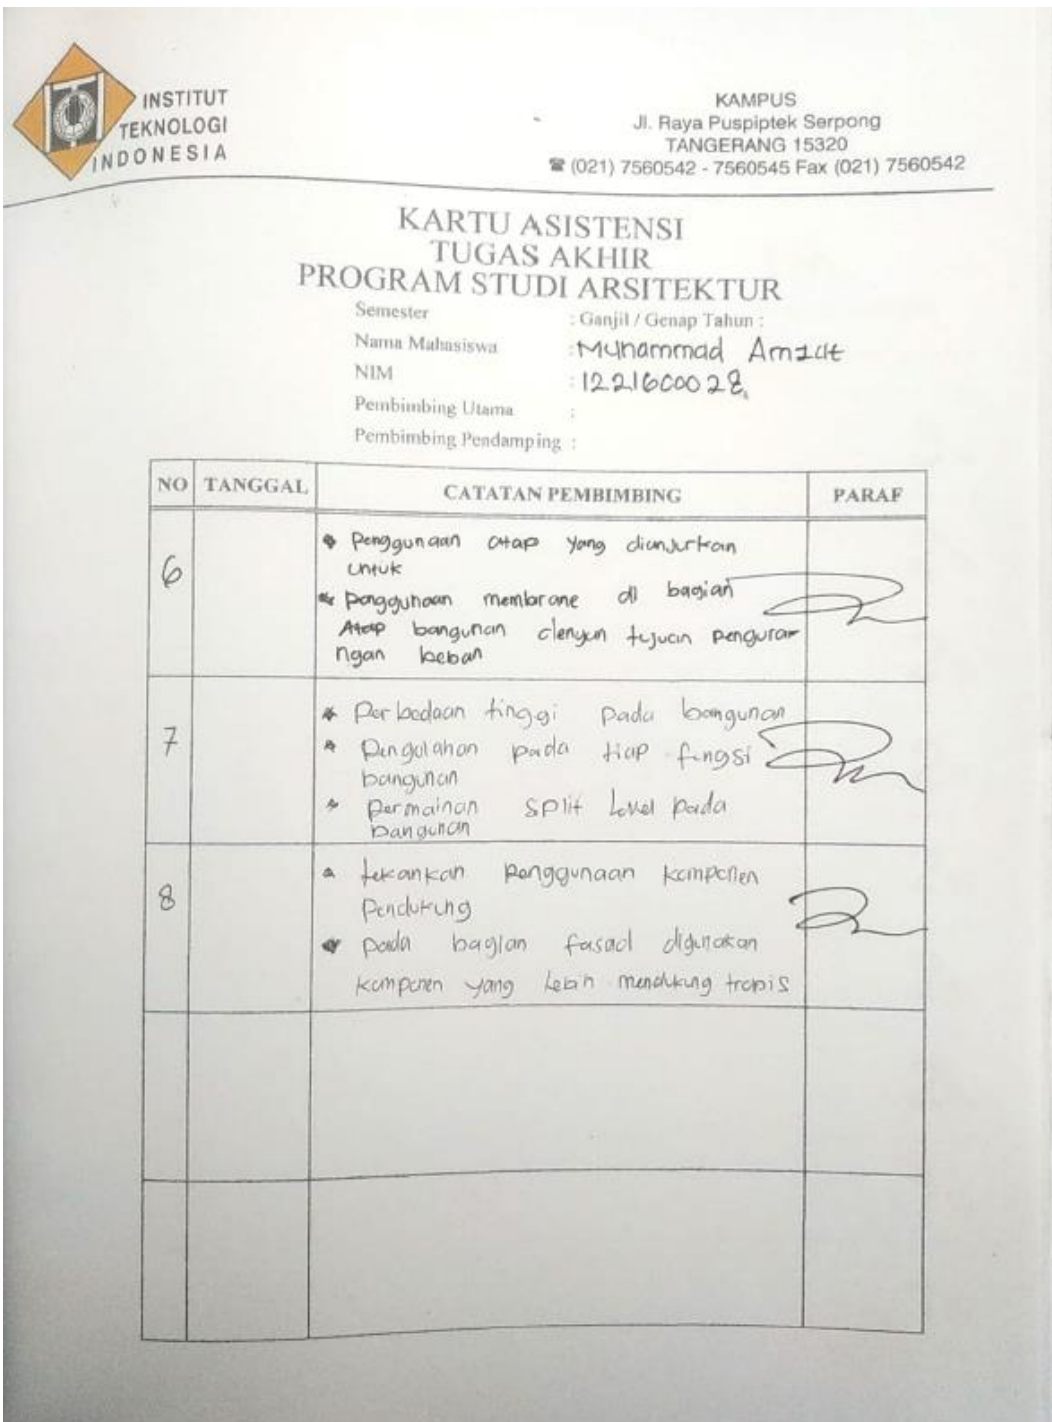 INSTITUT
TEKNOLOGI
INDONESIA
KAMPUS
Jl. Raya Puspiptek Serpong
TANGERANG 15320
☎ (021) 7560542 - 7560545 Fax (021) 7560542
KARTU ASISTENSI
TUGAS AKHIR
PROGRAM STUDI ARSITEKTUR
Semester : Ganjil / Genap Tahun :
Nama Mahasiswa : Muhammad
NIM : 1221600028
Pembimbing Utama :
Pembimbing Pendamping :
NO TANGGAL CATATAN PEMBIMBING PARAF
6
Penggunaan atap yang dianjurkan
untuk
penggunaan membrane di bagian
Atap bangunan dengan tujuan pengura-
ngan beban
7
Perbedaan tinggi pada bangunan
Pengolahan pada tiap fungsi
bangunan
permainan split level pada
bangunan
8
tekankan penggunaan komponen
Pendukung
pada bagian fasad digunakan
komponen yang lebih mendukung tropis